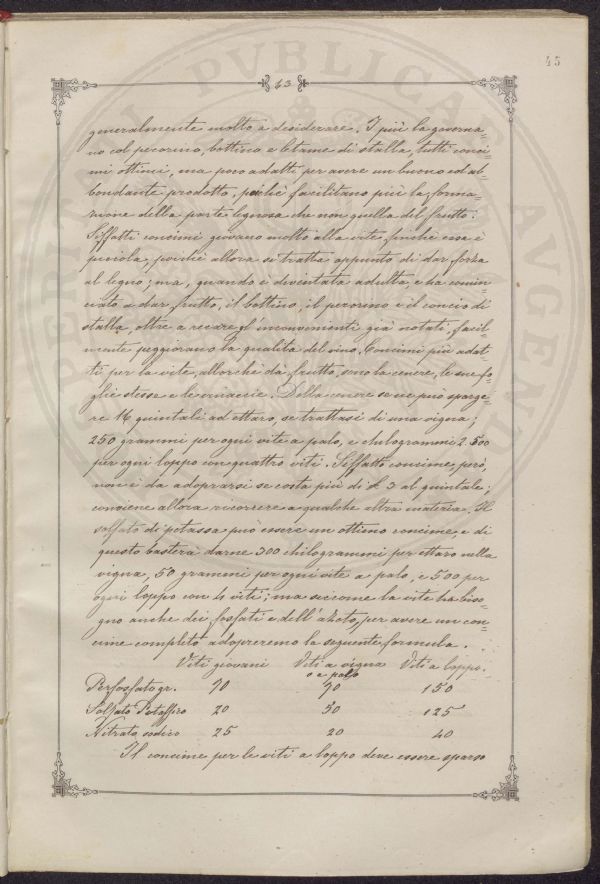 45
43
generalmente molto a desiderare. I più la governa=
no col pecorino, bottino e letame di stalla, tutti conci=
mi ottimi, ma poco adatti per avere un buono ed ab=
bondante prodotto, poiché facilitano più la forma=
zione della parte legnosa che non quella del frutto.
Siffatti concimi giovano molto alla vite finché essa è
piccola, poiché allora si tratta appunto di dar forza
al legno; ma, quando è diventata adulta, e ha comin=
ciato a dar frutto, il bottino, il pecorino e il concio di
stalla, oltre a recare gl'inconvenienti già notati, facil=
mente peggiorano la qualità del vino. Concimi più adat=
ti per la vite, allorché dà frutto, sono la cenere, le sue fo=
glie stesse e le vinacce. Della cenere se ne può sparge=
re 16 quintali ad ettaro, se trattasi di una vigna;
250 grammi per ogni vite a palo, e chilogrammi 2.500
per ogni loppo con quattro viti. Siffatto concime, però,
non è da adoprarsi se costa più di £ 3 al quintale;
conviene allora ricorrere a qualche altra materia. Il
solfato di potassa può essere un ottimo concime, e di
questo basterà darne 300 chilogrammi per ettaro nella
vigna, 50 grammi per ogni vite a palo, e 500 per
ogni loppo con 4 viti; ma siccome la vite ha biso=
gno anche dei fosfati e dell'azoto, per avere un con=
cime completo adopreremo la seguente formula.
Viti giovani Viti a vigna Viti a loppo.
o a palo
Perfosfato gr. 70 70 150
Solfato Potassico 20 50 125
Nitrato sodico 25 20 40
Il concime per le viti a loppo deve essere sparso